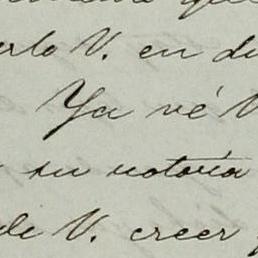 V. en
Ya vé V
su notoria
de V. creer